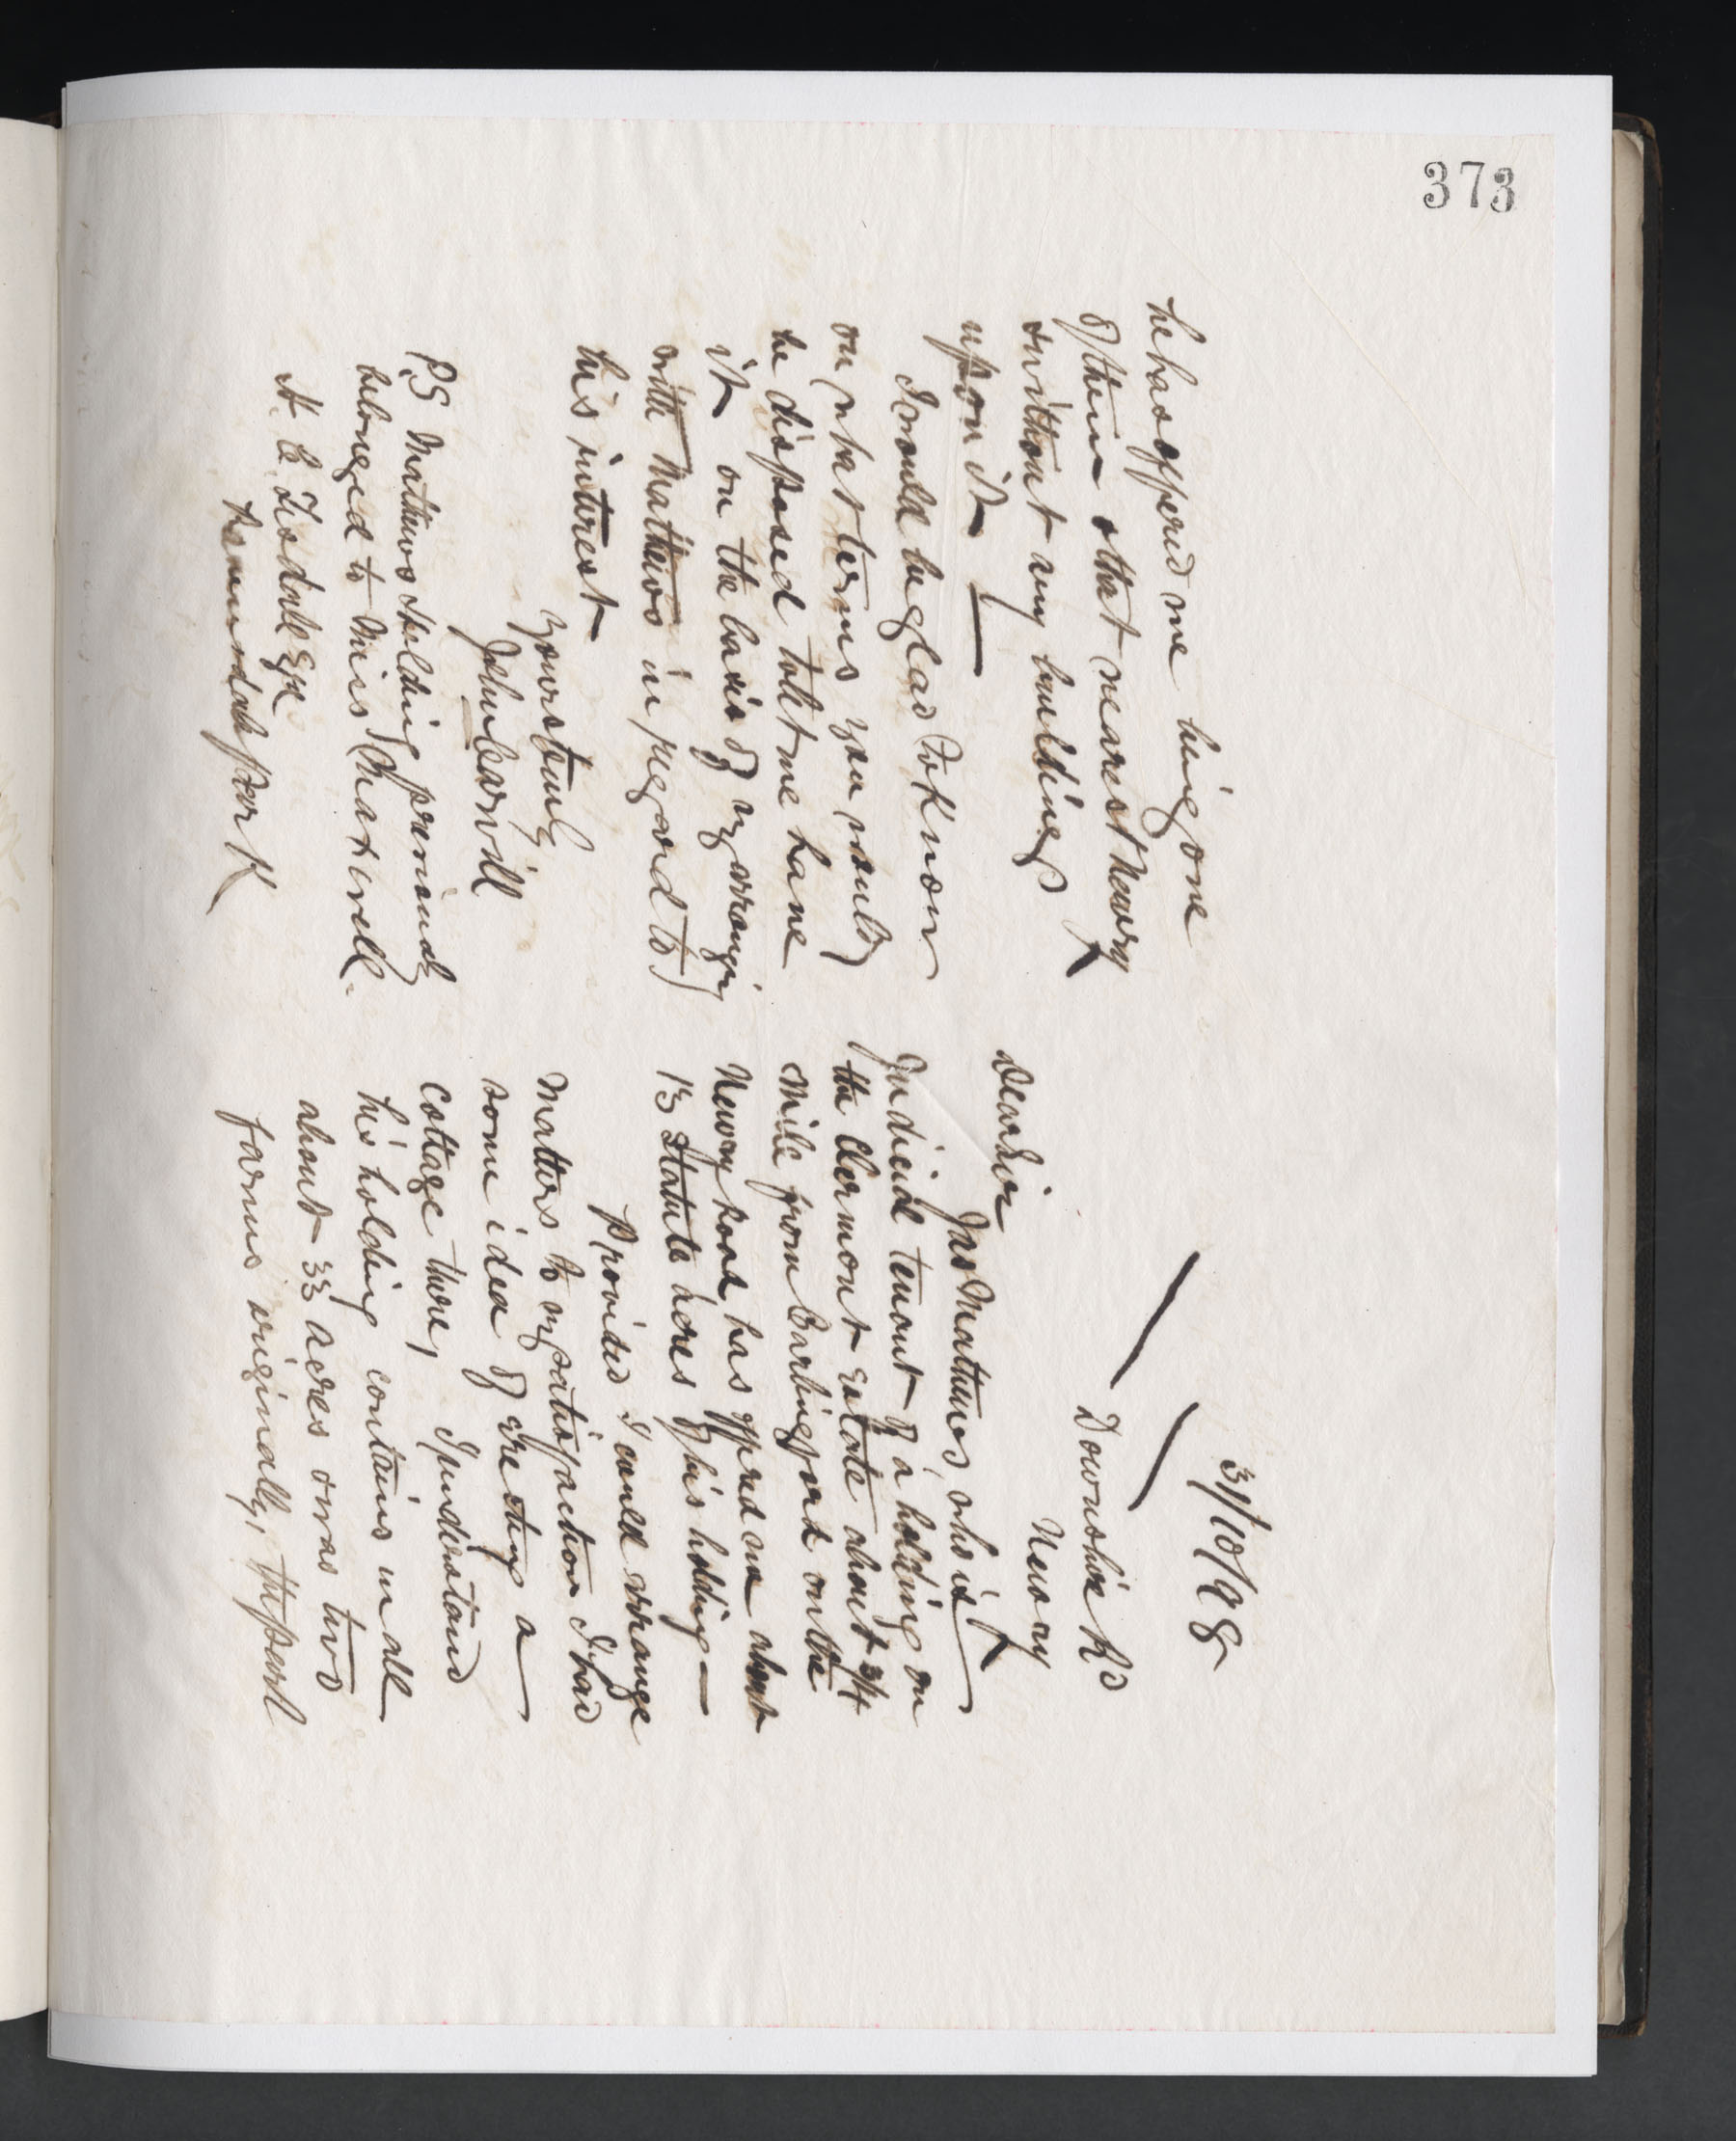 373
31/10/98
Downshire Rd
Newry
Dear Sir
Jas Mathews, who is
Judicial tenant of a holding on
the Clermont Estate about 3/4
mile from Carlingford on the
Newry Road has offered me about
13 Statute acres of his holding —
Provided I could arrange
matters to my satisfaction I had
some idea of erecting a
cottage there, I understand
his holding contains in all
about 33 acres & was two
farms originally, the part
he has offered me being one
of them & that nearest Newry
& without any buildings
upon it —
I would be glad to know
on what terms you would
be disposed to let me have
it on the basis of my arranging
with Mathews in regard to
his interest
Yours truly
John Carvill
P.S Mathews Holding previously
belonged to Miss Maxwell.
Esqr
Ravensdale Park